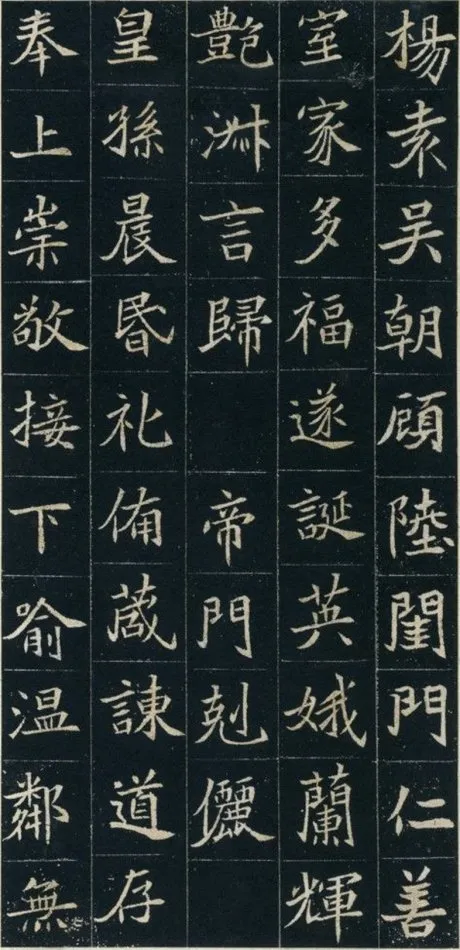 楊袁吴朝顧陸閨門仁善
室家多福遂誕英娥蘭輝
艷淋言歸 帝門剋儷
皇孫晨昏礼俻蒇諌道存
奉上崇敬接下喻温鄰無